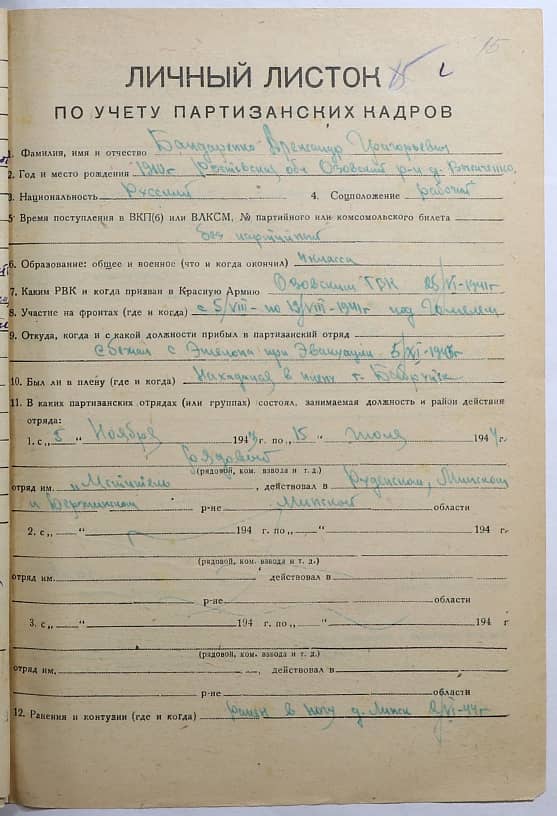 15
ЛИЧНЫЙ ЛИСТОК
ПО УЧЕТУ ПАРТИЗАНСКИХ КАДРОВ
1. Фамилия, имя и отчество Бандаренко Александр Григорьевич
2. Год и место рождения 1910г. Ростовская обл Озовский р-н д.
3. Национальность Русский 4. Соцположение рабочий
5. Время поступления в ВКП(б) или ВЛКСМ, № партийного или комсомольского билета
без партийный
6. Образование: общее и военное (что и когда окончил) 4 класса
7. Каким РВК и когда призван в Красную Армию Озовским ГВК 25/VI-1941г
8. Участие на фронтах (где и когда) с 5/VIII- по 19/VIII-1941г под Гомелем
9. Откуда, когда и с какой должности прибыл в партизанский отряд
Сбежал с Эшелона при Эвакуации 5/XI-1943г
10. Был ли в плену (где и когда) Находился в плену г. Бобруйск
11. В каких партизанских отрядах (или группах) состоял, занимаемая должность и район действия
отряда:
1. с „5“ Ноября 1943 г. по „15“ июля 1944г.
Рядовой
(рядовой, ком. взвода и т. д.)
отряд им. „Мститель , действовал в Руденском, Минском
и Держинском р-не Минской области
2. с „ “ 194 г. по „ “ 194 г.
(рядовой, ком. взвода и т. д.)
отряд им. , действовал в
р-не области
3. с „ “ 194 г. по „ “ 194 г
(рядовой, ком. взвода и т. д.)
отряд им. , действовал в
р-не области
12. Ранения и контузии (где и когда) Ранен в ногу д. /VI-44г